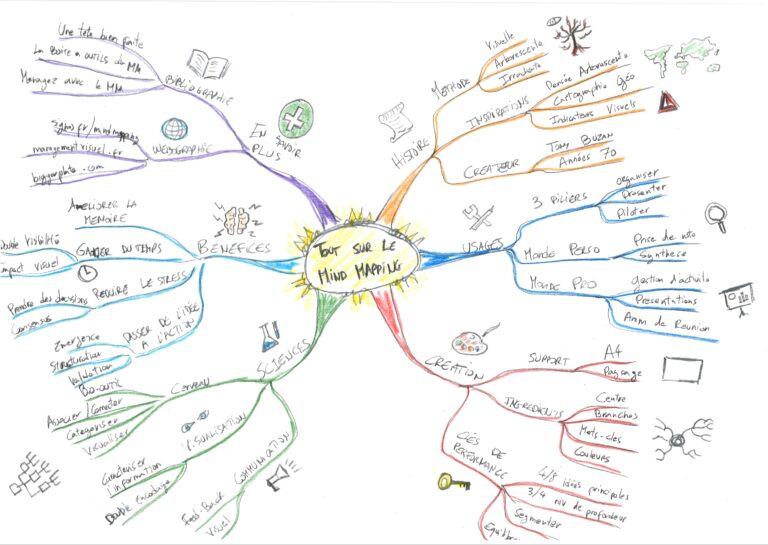 TOUT SUR LE
MIND MAPPING
HISTOIRE
MÉTHODE
Visuelle
Arborescente
Irradiante
INSPIRATIONS
Pensée Arborescente
Cartographie Géo
Indicateurs Visuels
CRÉATEUR
TONY BUZAN
Années 70
USAGES
3 PILIERS
organiser
Présenter
Piloter
MONDE PERSO
Prise de note
Synthèse
MONDE PRO
Gestion d'activité
Présentations
Anim de Réunion
CRÉATION
SUPPORT
A4
Paysage
INGRÉDIENTS
Centre
Branches
Mots-clés
Couleurs
CLÉS DE
PERFORMANCE
4/8 idées principales
3/4 niv de profondeur
Segmenter
SCIENCES
CERVEAU
Bio-outil
Associer/Connecter
Catégoriser
Visualiser
VISUALISATION
l'information
Double encodage
COMMUNICATION
Feed-Back
Visuel
BENEFICES
AMELIORER LA
MEMOIRE
GAGNER DU TEMPS
Double visibilité
Impact visuel
REDUIRE LE STRESS
Prendre des décisions
Consensus
PASSER DE L'IDÉE
A L'ACTION
Emergence
Structuration
Validation
EN
SAVOIR
PLUS
BIBLIOGRAPHIE
Une tête bien faite
La Boite à outils du MM
Managez avec le MM
WEBOGRAPHIE
managementvisuel.fr